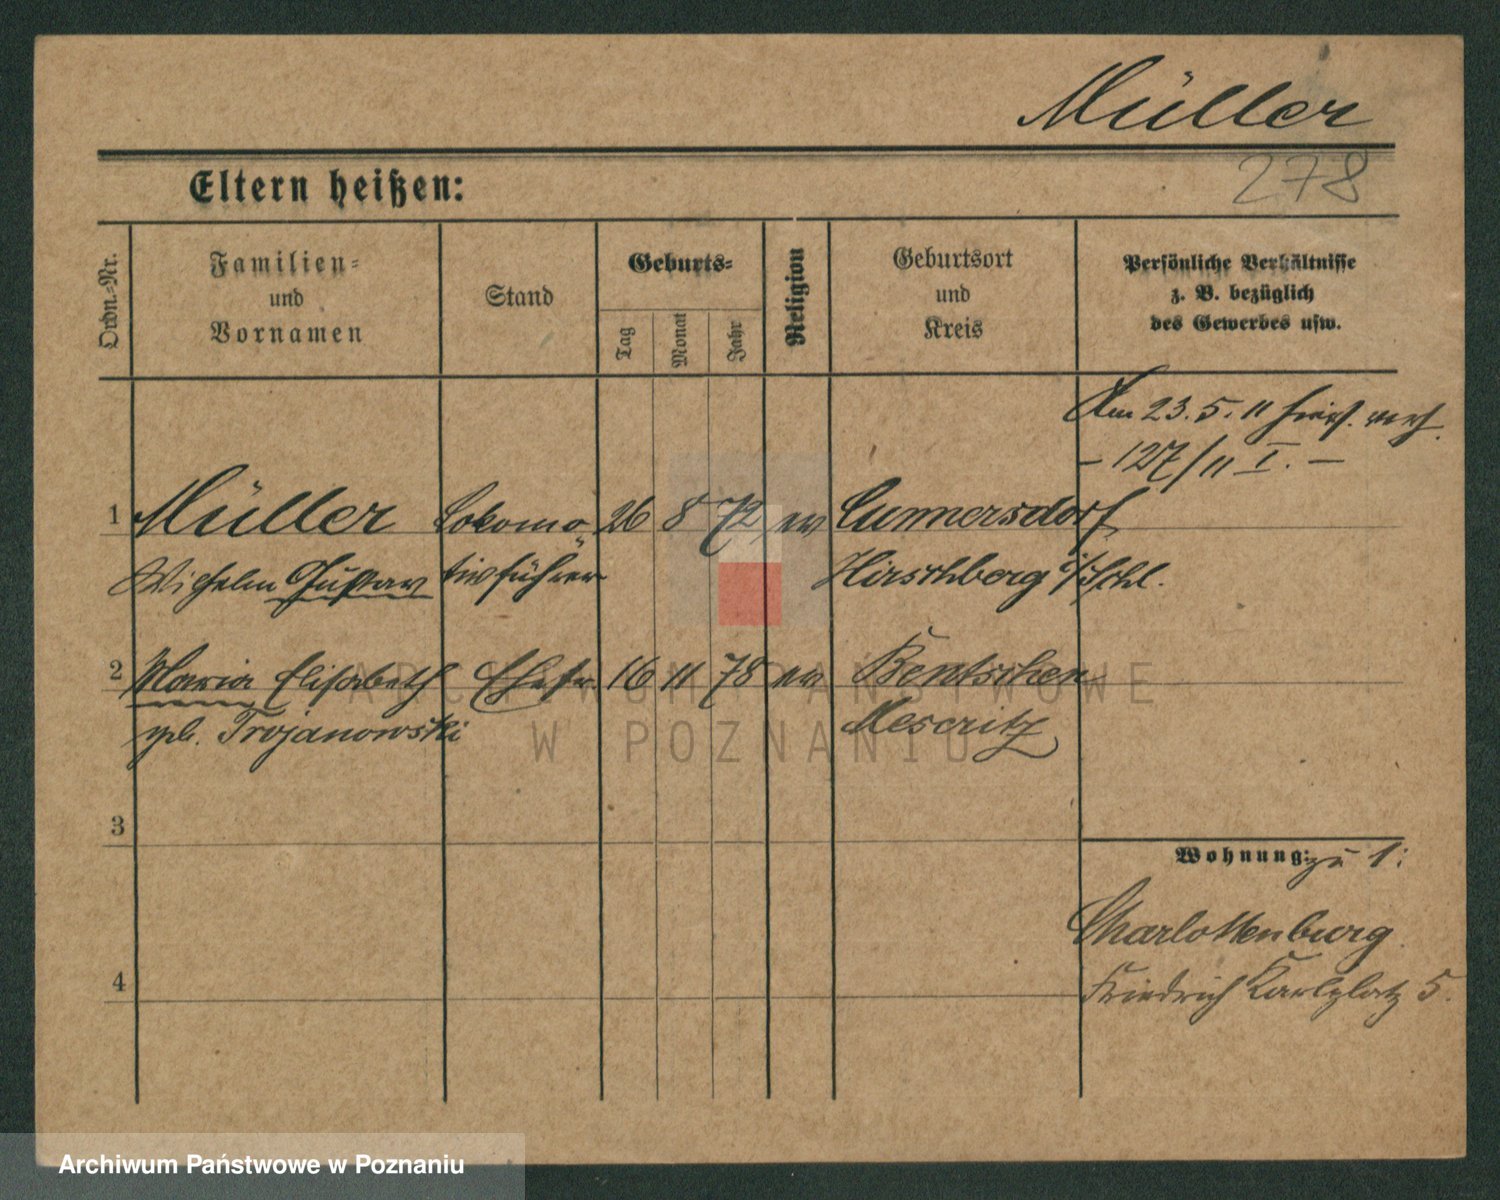 Müller
278
Eltern heißen:
Ordn.-Nr.
Familien-
und
Vornamen
Stand
Geburts-
Tag
Monat
Jahr
Religion
Geburtsort
und
Kreis
Persönliche Verhältnisse
z. B. bezüglich
des Gewerbes usw.
Am 23.5.11
- 127/11 I. -
1 Müller Lokomo- 26 8 72 ev Cunnersdorf
Wilhelm Gustav tivführer Hirschberg i/Schl.
2 Maria Elisabeth Ehefr. 16 11 78 ev Bentschen
geb. Trojanowski Meseritz
3
Wohnung: zu 1:
Charlottenburg
4 Friedrich Karlplatz 5.
ARCHIWUM PAŃSTWOWE
W POZNANIU
Archiwum Państwowe w Poznaniu